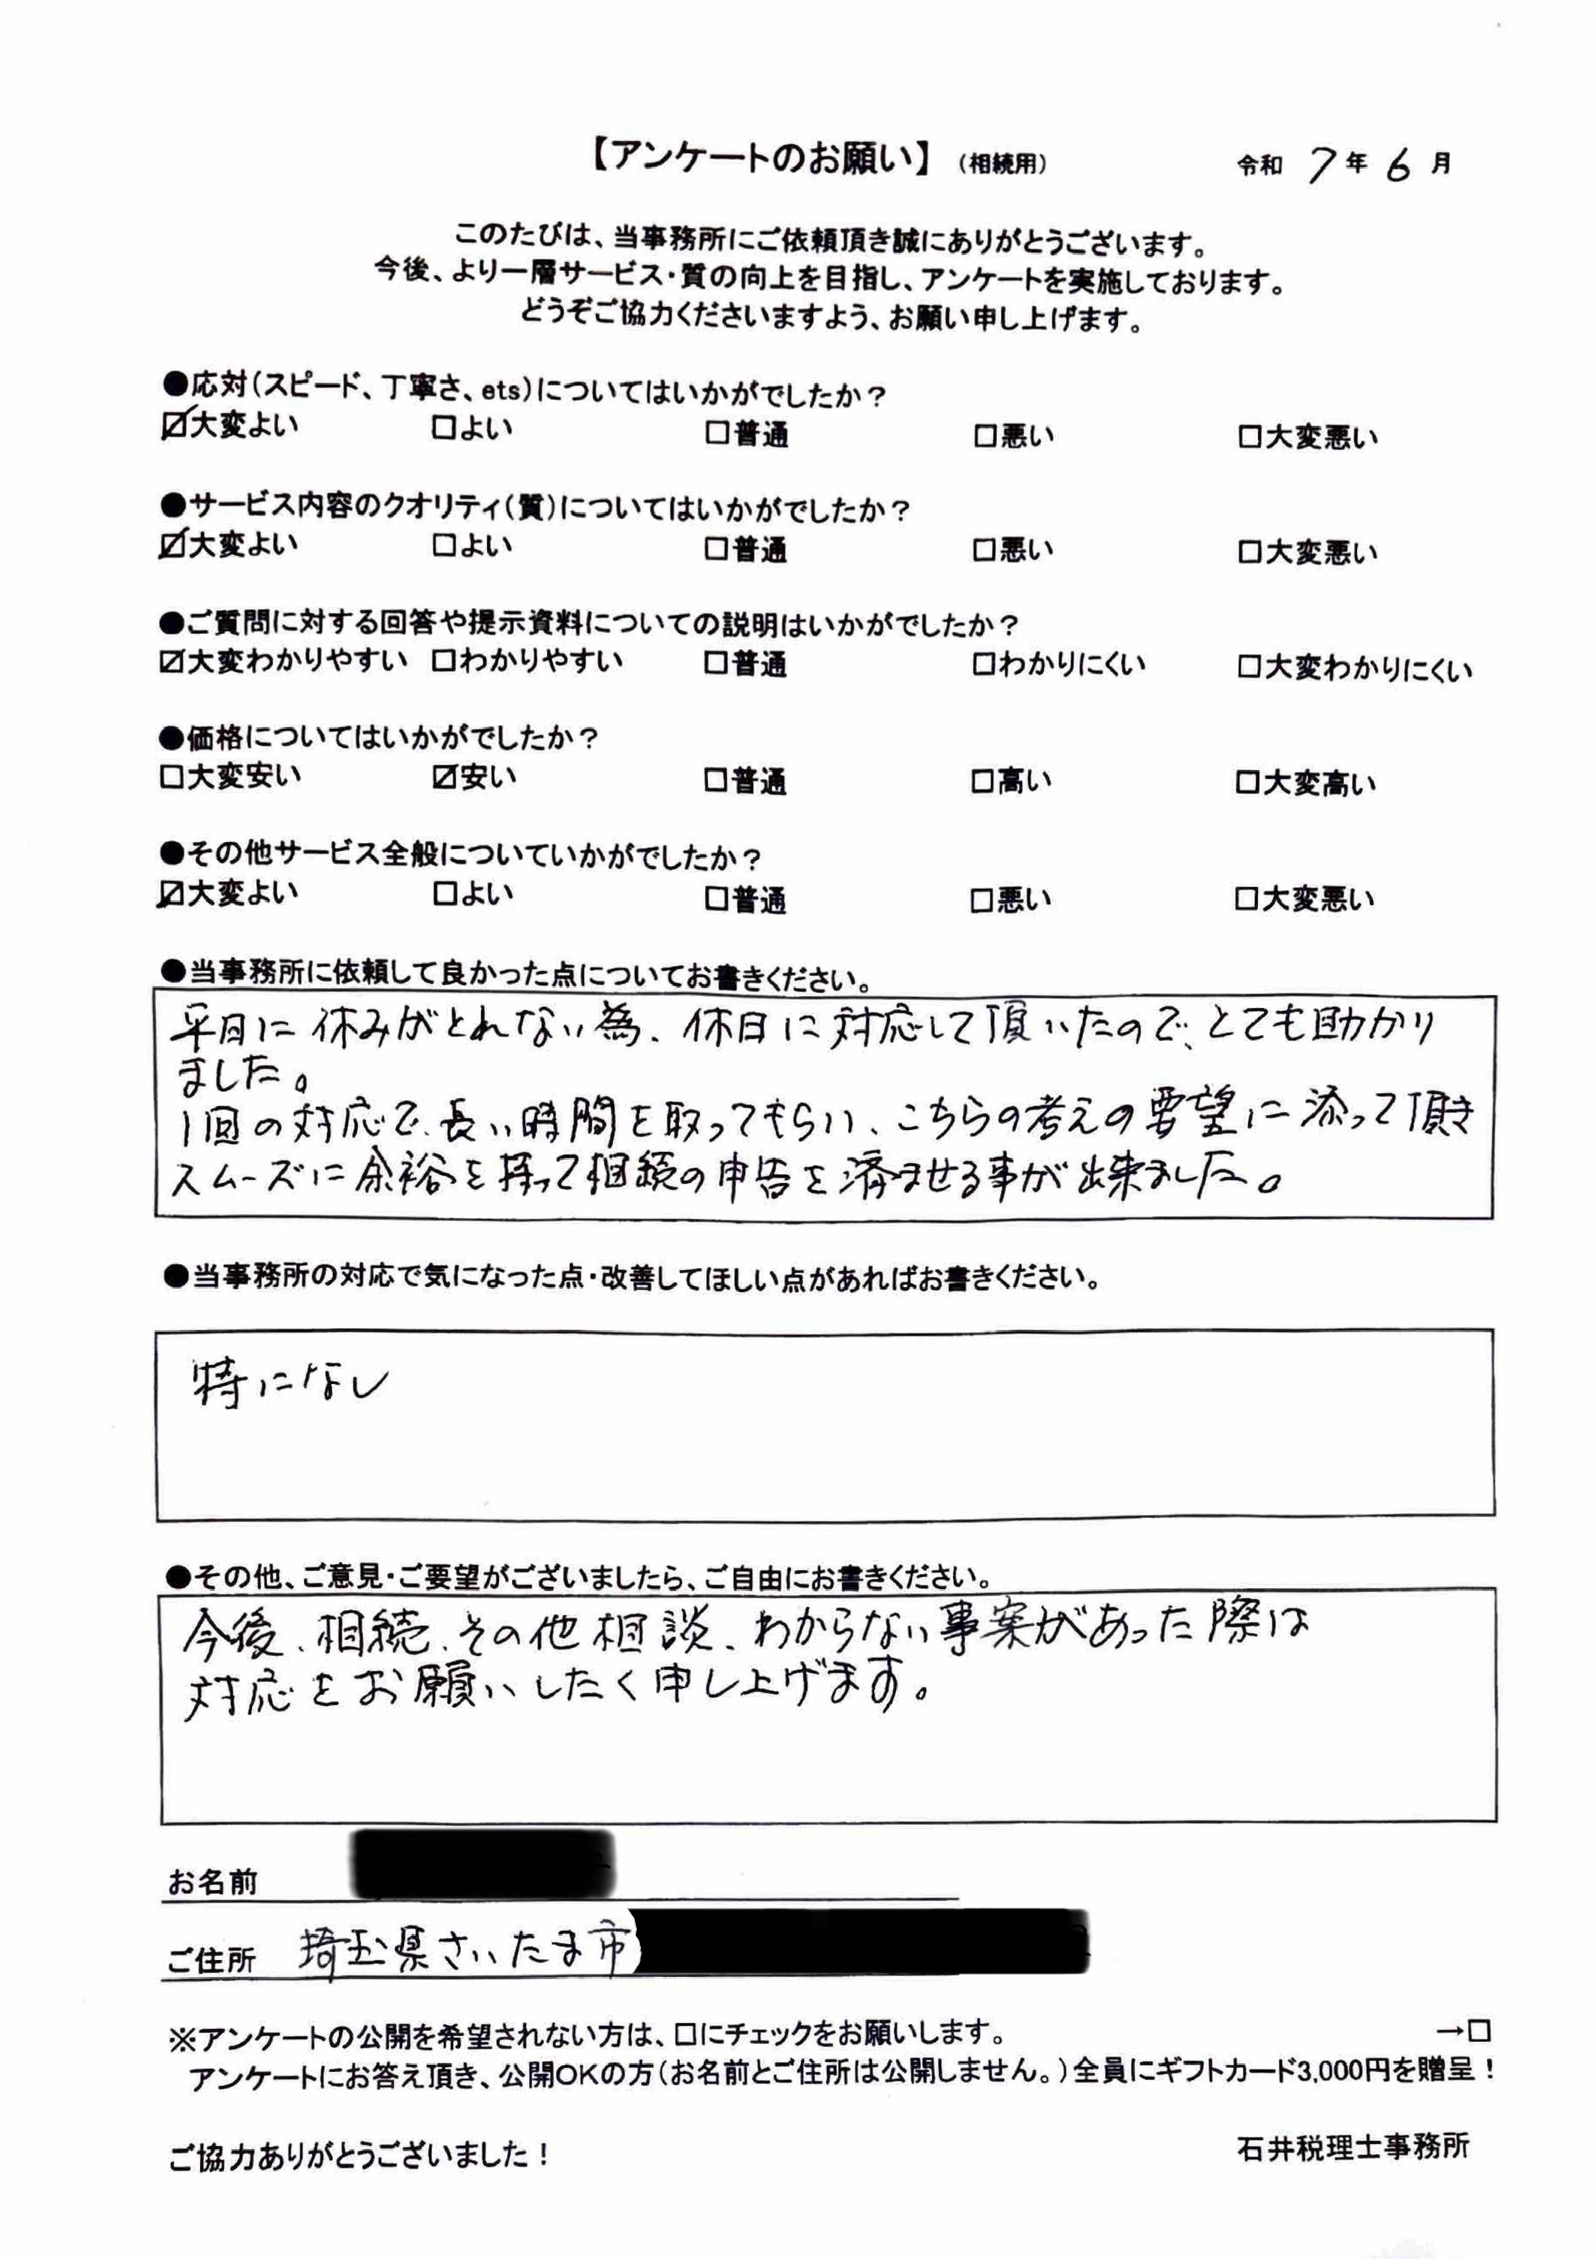 【アンケートのお願い】（相続用） 令和 7 年 6 月
このたびは、当事務所にご依頼頂き誠にありがとうございます。
今後、より一層サービス・質の向上を目指し、アンケートを実施しております。
どうぞご協力くださいますよう、お願い申し上げます。
●応対（スピード、丁寧さ、ets）についてはいかがでしたか？
☑大変よい □よい □普通 □悪い □大変悪い
●サービス内容のクオリティ（質）についてはいかがでしたか？
☑大変よい □よい □普通 □悪い □大変悪い
●ご質問に対する回答や提示資料についての説明はいかがでしたか？
☑大変わかりやすい □わかりやすい □普通 □わかりにくい □大変わかりにくい
●価格についてはいかがでしたか？
□大変安い ☑安い □普通 □高い □大変高い
●その他サービス全般についていかがでしたか？
☑大変よい □よい □普通 □悪い □大変悪い
●当事務所に依頼して良かった点についてお書きください。
平日に休みがとれない為、休日に対応して頂いたので、とても助かり
ました。
1回の対応で、長い時間を取ってもらい、こちらの考えの要望に添って頂き
スムーズに余裕を持って相続の申告を済ませる事が出来ました。
●当事務所の対応で気になった点・改善してほしい点があればお書きください。
特になし
●その他、ご意見・ご要望がございましたら、ご自由にお書きください。
今後、相続、その他相談、わからない事案があった際は
対応をお願いしたく申し上げます。
お名前
ご住所 埼玉県さいたま市
※アンケートの公開を希望されない方は、□にチェックをお願いします。 →□
アンケートにお答え頂き、公開OKの方（お名前とご住所は公開しません。）全員にギフトカード3,000円を贈呈！
ご協力ありがとうございました！ 石井税理士事務所